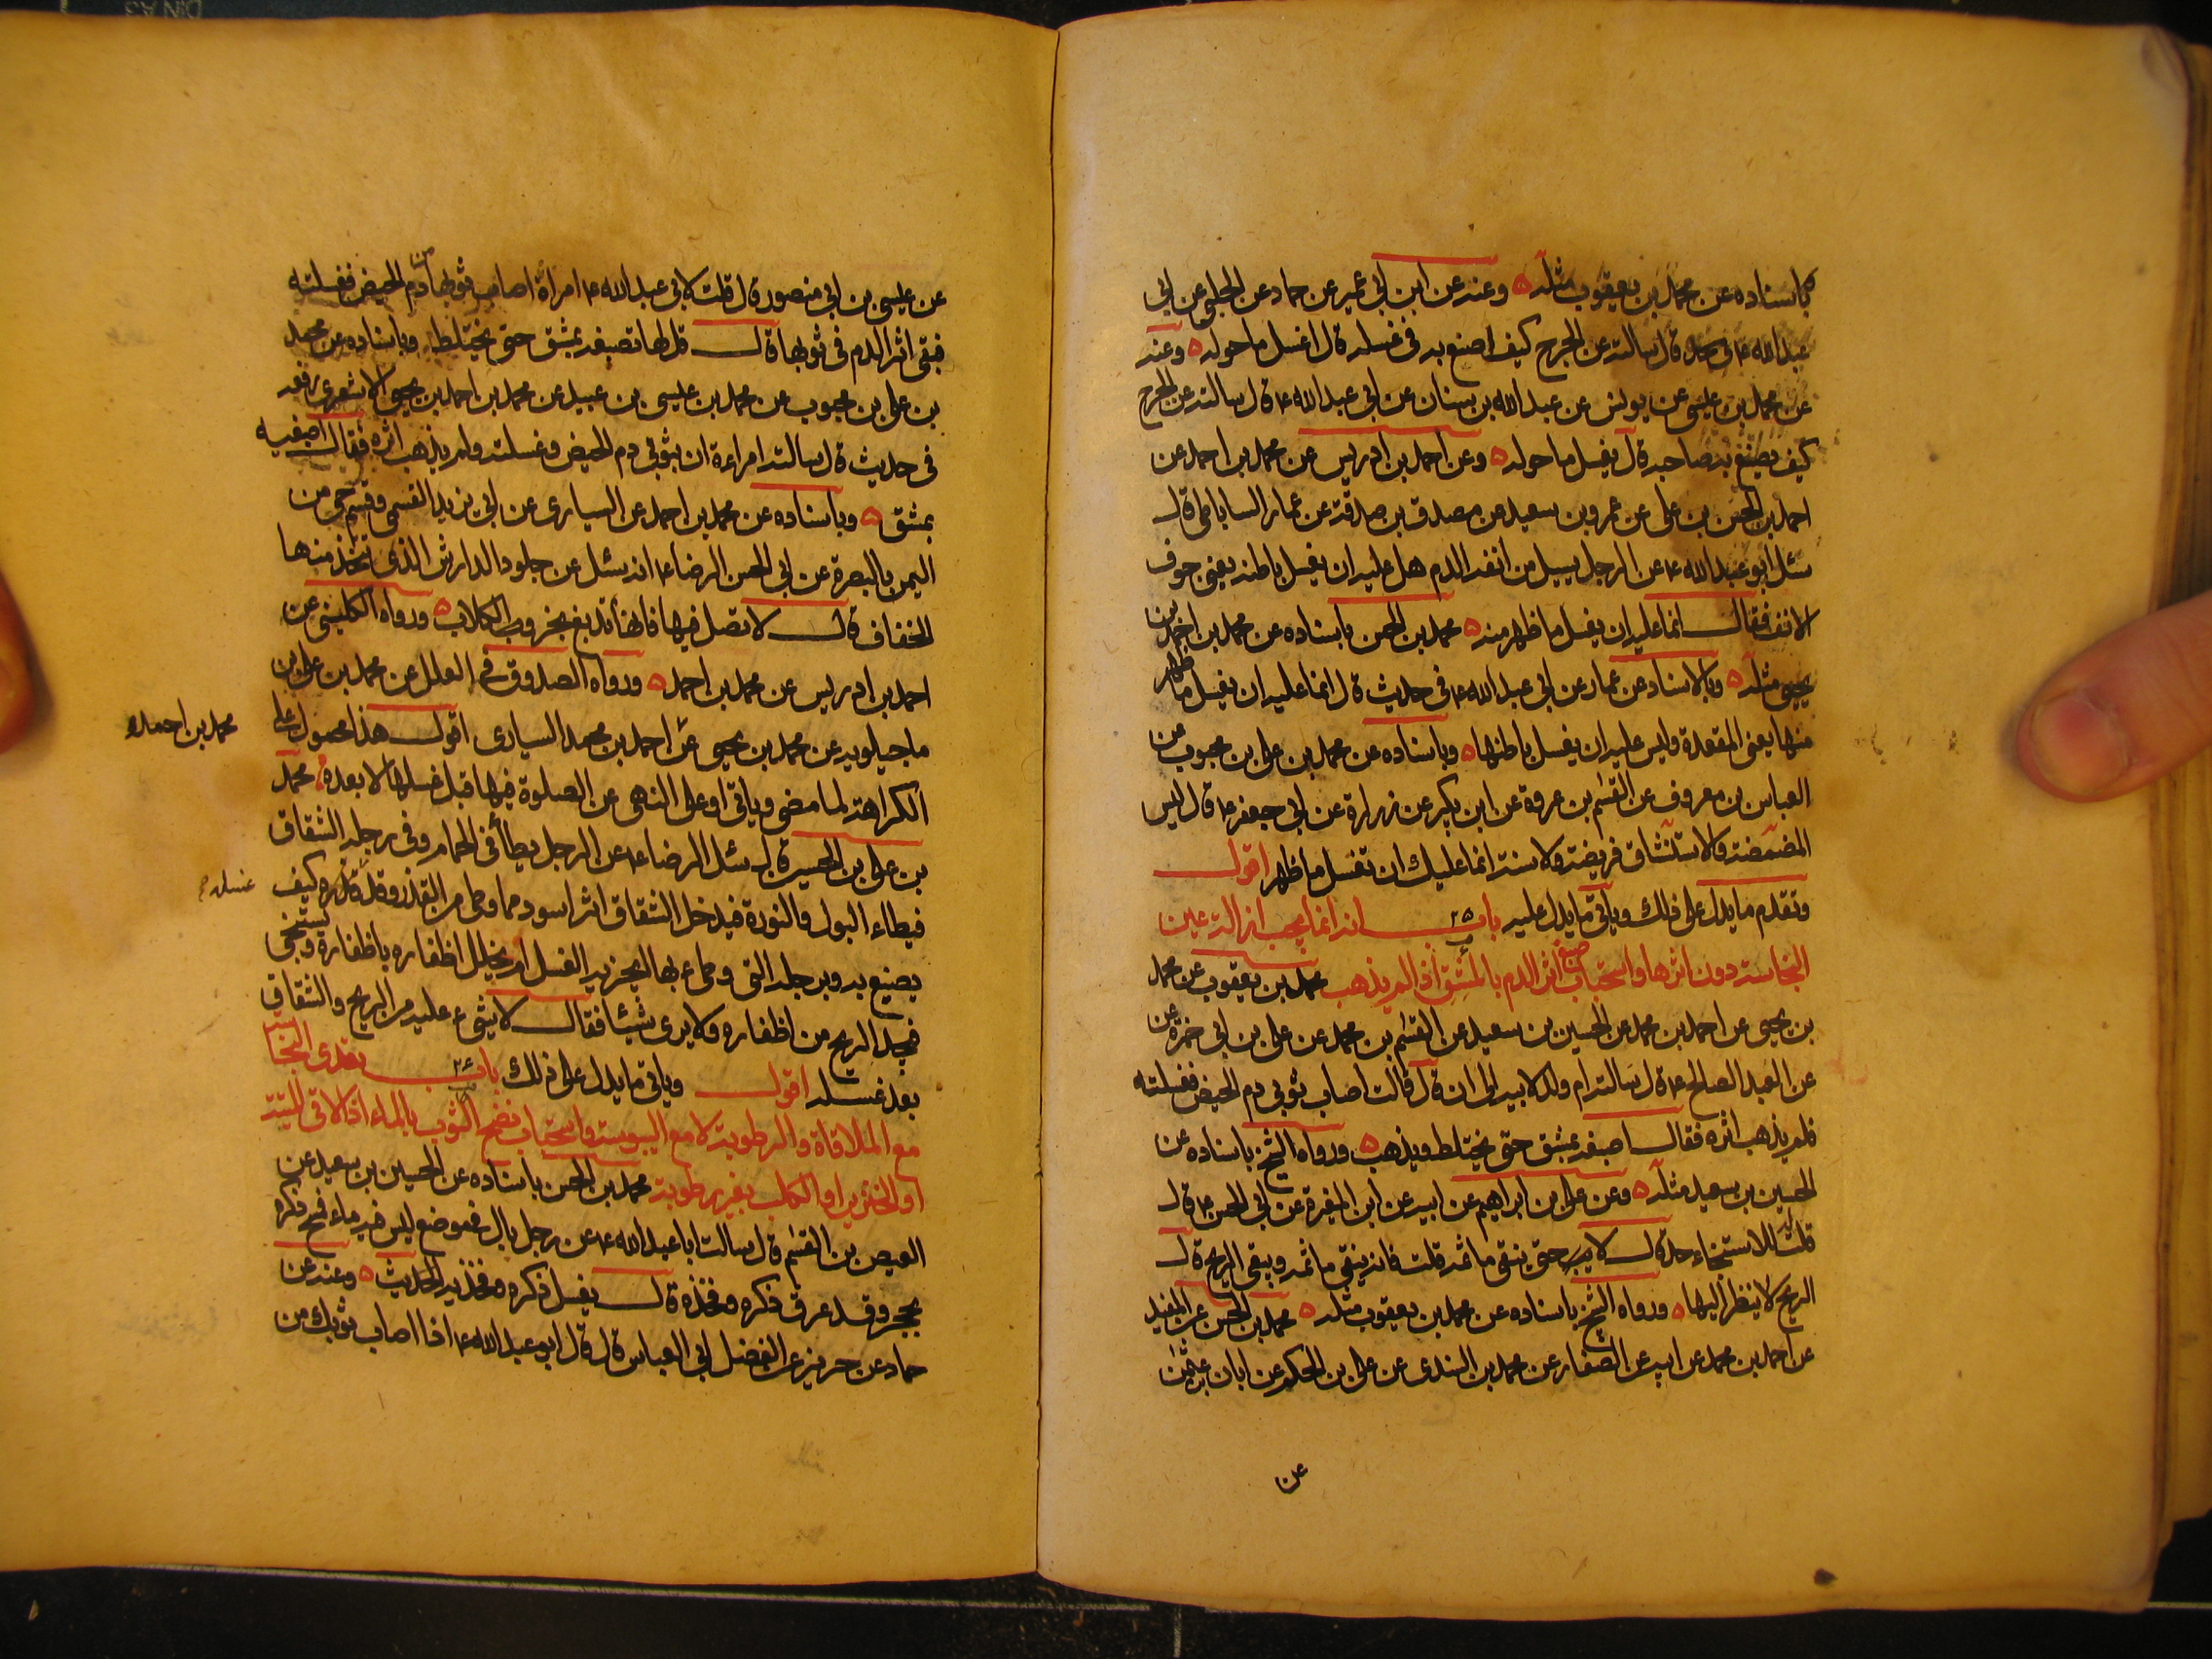 باسناده عن محمد بن يعقوب مثله ه وعنه عن ابن ابي عمير عن حماد عن الحلبي عن ابي
عبد الله ع في حديث قال سالته عن الجرح كيف اصنع به في غسله قال اغسل ما حوله ه وعنه
عن محمد بن عيسى عن يونس عن عبد الله بن سنان عن ابي عبد الله ع قال سالته عن الجرح
كيف يصنع به صاحبه قال يغسل ما حوله ه وعن احمد بن ادريس عن محمد بن احمد عن
احمد بن الحسن بن علي عن عمرو بن سعيد عن مصدق بن صدقة عن عمار الساباطي قال
سئل ابو عبد الله ع عن الرجل يسيل من انفه الدم هل عليه ان يغسل باطنه يعني جوف
الانف فقال انما عليه ان يغسل ما ظهر منه ه محمد بن الحسن باسناده عن محمد بن احمد بن
يحيى مثله ه وبالاسناد عن عمار عن ابي عبد الله ع في حديث قال انما عليه ان يغسل ما ظهر
منها يعني المقعدة وليس عليه ان يغسل باطنها ه وباسناده عن محمد بن علي بن محبوب عن
العباس بن معروف عن القسم بن عروة عن ابن بكير عن زرارة عن ابي جعفر ع قال ليس
المضمضة والاستنشاق فريضة ولا سنة انما عليك ان تغسل ما ظهر اقول
وتقدم ما يدل على ذلك وياتي ما يدل عليه باب ٢٥ انه انما يجب ازالة عين
النجاسة دون اثرها واستحباب صبغ اثر الدم بالمشق اذا لم يذهب محمد بن يعقوب عن محمد
بن يحيى عن احمد بن محمد عن الحسين بن سعيد عن القسم بن محمد عن علي بن ابي حمزة عن
عن العبد الصالح ع قال سالته ام ولد لابيه الى ان قال قالت اصاب ثوبي دم الحيض فغسلته
فلم يذهب اثره فقال اصبغيه بمشق حتى يختلط ويذهب ه ورواه الشيخ باسناده عن
الحسين بن سعيد مثله ه وعن علي بن ابراهيم عن ابيه عن ابن المغيرة عن ابي الحسن ع قال
قلت له للاستنجاء حد قال لا حتى ينقى ما ثمه قلت فانه ينقى ما ثمه ويبقى الريح قال
الريح لا ينظر اليها ه ورواه الشيخ باسناده عن محمد بن يعقوب مثله ه محمد بن الحسن عن المفيد
عن احمد بن محمد عن ابيه عن الصفار عن محمد بن السندي عن علي بن الحكم عن ابان بن عثمن
عن
عن عيسى بن ابي منصور قال قلت لابي عبد الله ع امراة اصاب ثوبها من دم الحيض فغسلته
فبقى اثر الدم في ثوبها قال قل لها تصبغه بمشق حتى يختلط وباسناده عن محمد
بن علي بن محبوب عن محمد بن عيسى بن عبيد عن محمد بن احمد بن يحيى الاشعري رفعه
في حديث قال سالته امراءة ان بثوبي دم الحيض وغسلته ولم يذهب اثره فقال اصبغيه
بمشق ه وباسناده عن محمد بن احمد عن السياري عن ابي يزيد القسمي وقسم حي من
اليمن بالبصرة عن ابي الحسن الرضا ع انه سئل عن جلود الدارش الذي تتخذ منها
الخفاف قال لا تصل فيها فانها تدبغ بخرؤ الكلاب ه ورواه الكليني عن
احمد بن ادريس عن محمد بن احمد ه ورواه الصدوق في العلل عن محمد بن علي بن
ماجيلويه عن محمد بن يحيى عن احمد بن محمد السياري اقول هذا محمول على
محمد بن احمد
الكراهة لما مضى وياتي او على النهى عن الصلوة فيها قبل غسلها لا بعده ه محمد
بن علي بن الحسين قال سئل الرضا ع عن الرجل يطأ في الحمام وفي رجله الشقاق
فيطاء البول والنورة فيدخل الشقاق اثر اسود مما وطى من القذر وقد غسله كيف
غسله
يصنع به وبرجله التي وطىء بها ايجزيه الغسل ام يخلل اظفاره باظفاره ويستنجى
فيجد الريح من اظفاره ولا يرى شيئا فقال لا شيء عليه من الريح والشقاق
بعد غسله اقول وياتي ما يدل على ذلك باب ٢٦ تعدى النجاسة
مع الملاقاة والرطوبة لا مع اليبوسة واستحباب نضح الثوب بالماء اذا لاقى الميتة
او الخنزير او الكلب بغير رطوبة محمد بن الحسن باسناده عن الحسين بن سعيد عن
العيص بن القسم قال سالت ابا عبد الله ع عن رجل بال في موضع ليس فيه ماء فمسح ذكره
بحجر وقد عرق ذكره وفخذه قال يغسل ذكره وفخذيه الحديث ه وعنه عن
حماد عن حريز عن الفضل ابي العباس قال قال ابو عبد الله ع اذا اصاب ثوبك من